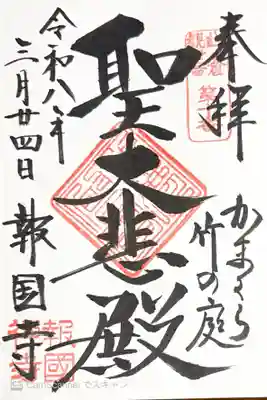 奉拝
かまくら
竹の庭
聖大悲殿
令和八年
三月廿四日
報国寺
報國
CamScanner でスキャン